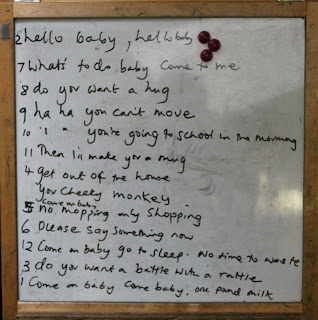 2 hello baby, hello baby
7 What's to do baby come to me
8 do you want a hug
9 ha ha you can't move
10 " " you're going to school in the morning
11 Then I'll make you a mug
4 get out of the house
you cheeky monkey.
come on baby
5 no mopping only shopping
6 Please say something now
12 Come on baby go to sleep. No time to waste
3 do you want a battle with a rattle
1 Come on baby come baby. one pand milk